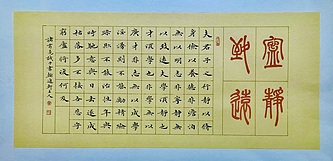 寧靜
致遠
夫君子之行靜以修
身儉以養德非澹泊
無以明志非寧靜無
以致遠夫學須靜也
才須學也非學無以
廣才非志無以成學
淫漫則不能勵精險
躁則不能治性年與
時馳意與日去遂成
枯落多不接世悲守
窮廬將復何及
諸葛亮誡子書